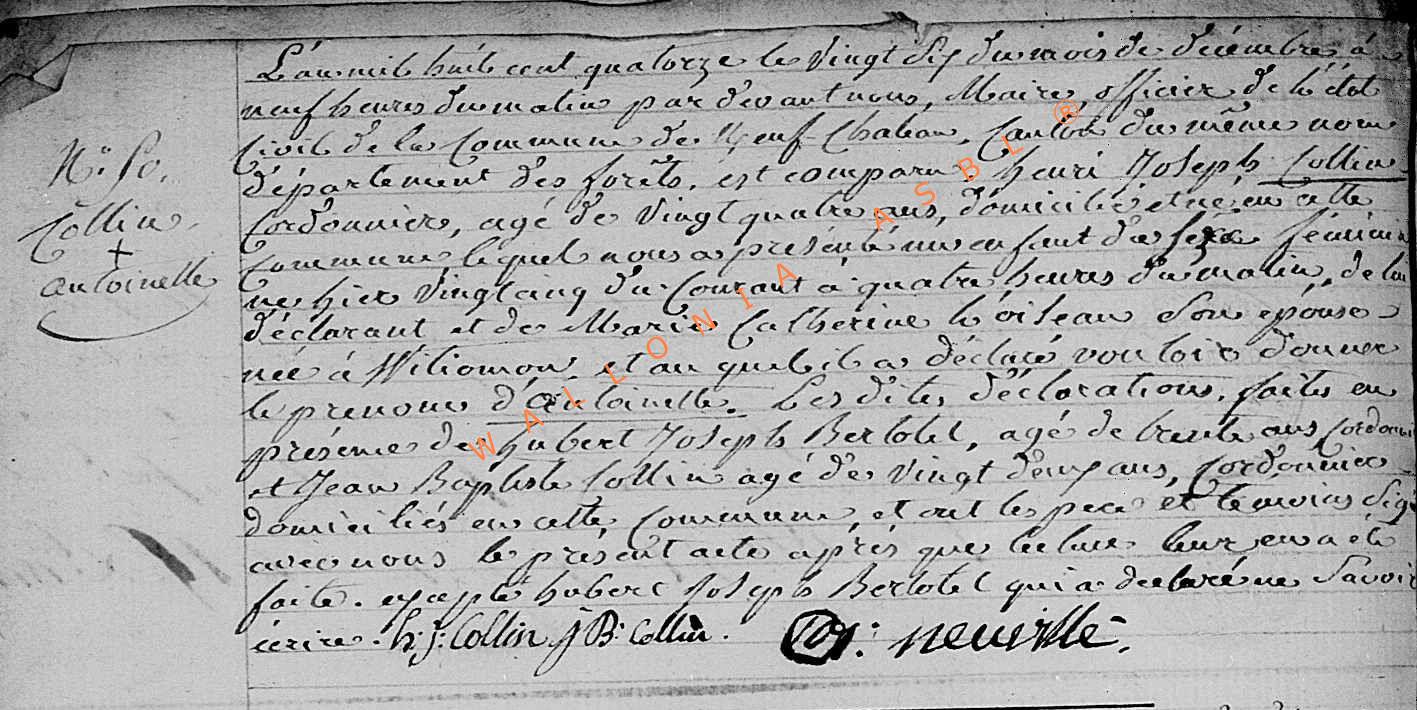 L'an mil huit cent quatorze le vingt six du mois de décembre, à
neuf heures du matin par devant nous, Maire, officier de l'état
Civil de la Commune de Neuf-Chateau, Canton du même nom
département des forêts, est comparu henri Joseph Collin
Cordonnier, agé de vingt quatre ans, domicilié et né en cette
Commune lequel nous a présenté un enfant du sexe féminin
né hier vingt cinq du Courant à quatre heures du matin, de lui
déclarant et de Marie Catherine l'oiseau son épouse
née à Witiomon, et au quel il a déclaré vouloir donner
le prenom d'Antoinette. Les dites déclarations, faites en
présence de hubert Joseph Bertotel, agé de trente ans Cordonni
et Jean Baptiste Collin agé de vingt deux ans, Cordonnier
domiciliés en cette Commune, et ont les pere et témoins sig
avec nous le présent acte après que lecture leur en a été
faite. excepté hubert Joseph Bertotel qui a declaré ne savoir
écrire. h: j: Collin J B: Collin. neuville
N.° 80.
Collin
+
antoinette
WALLONIA ASBL ®